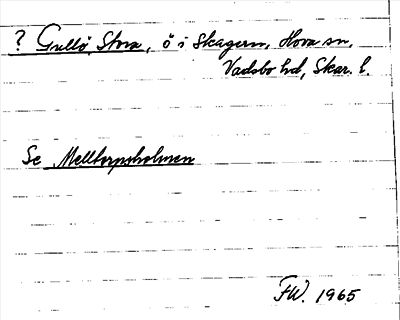 ? Gullö, Stora, ö i Skagern, Hova sn,
Vadsbo hd, Skar. l.
Se Mellterpsholmen
FW. 1965